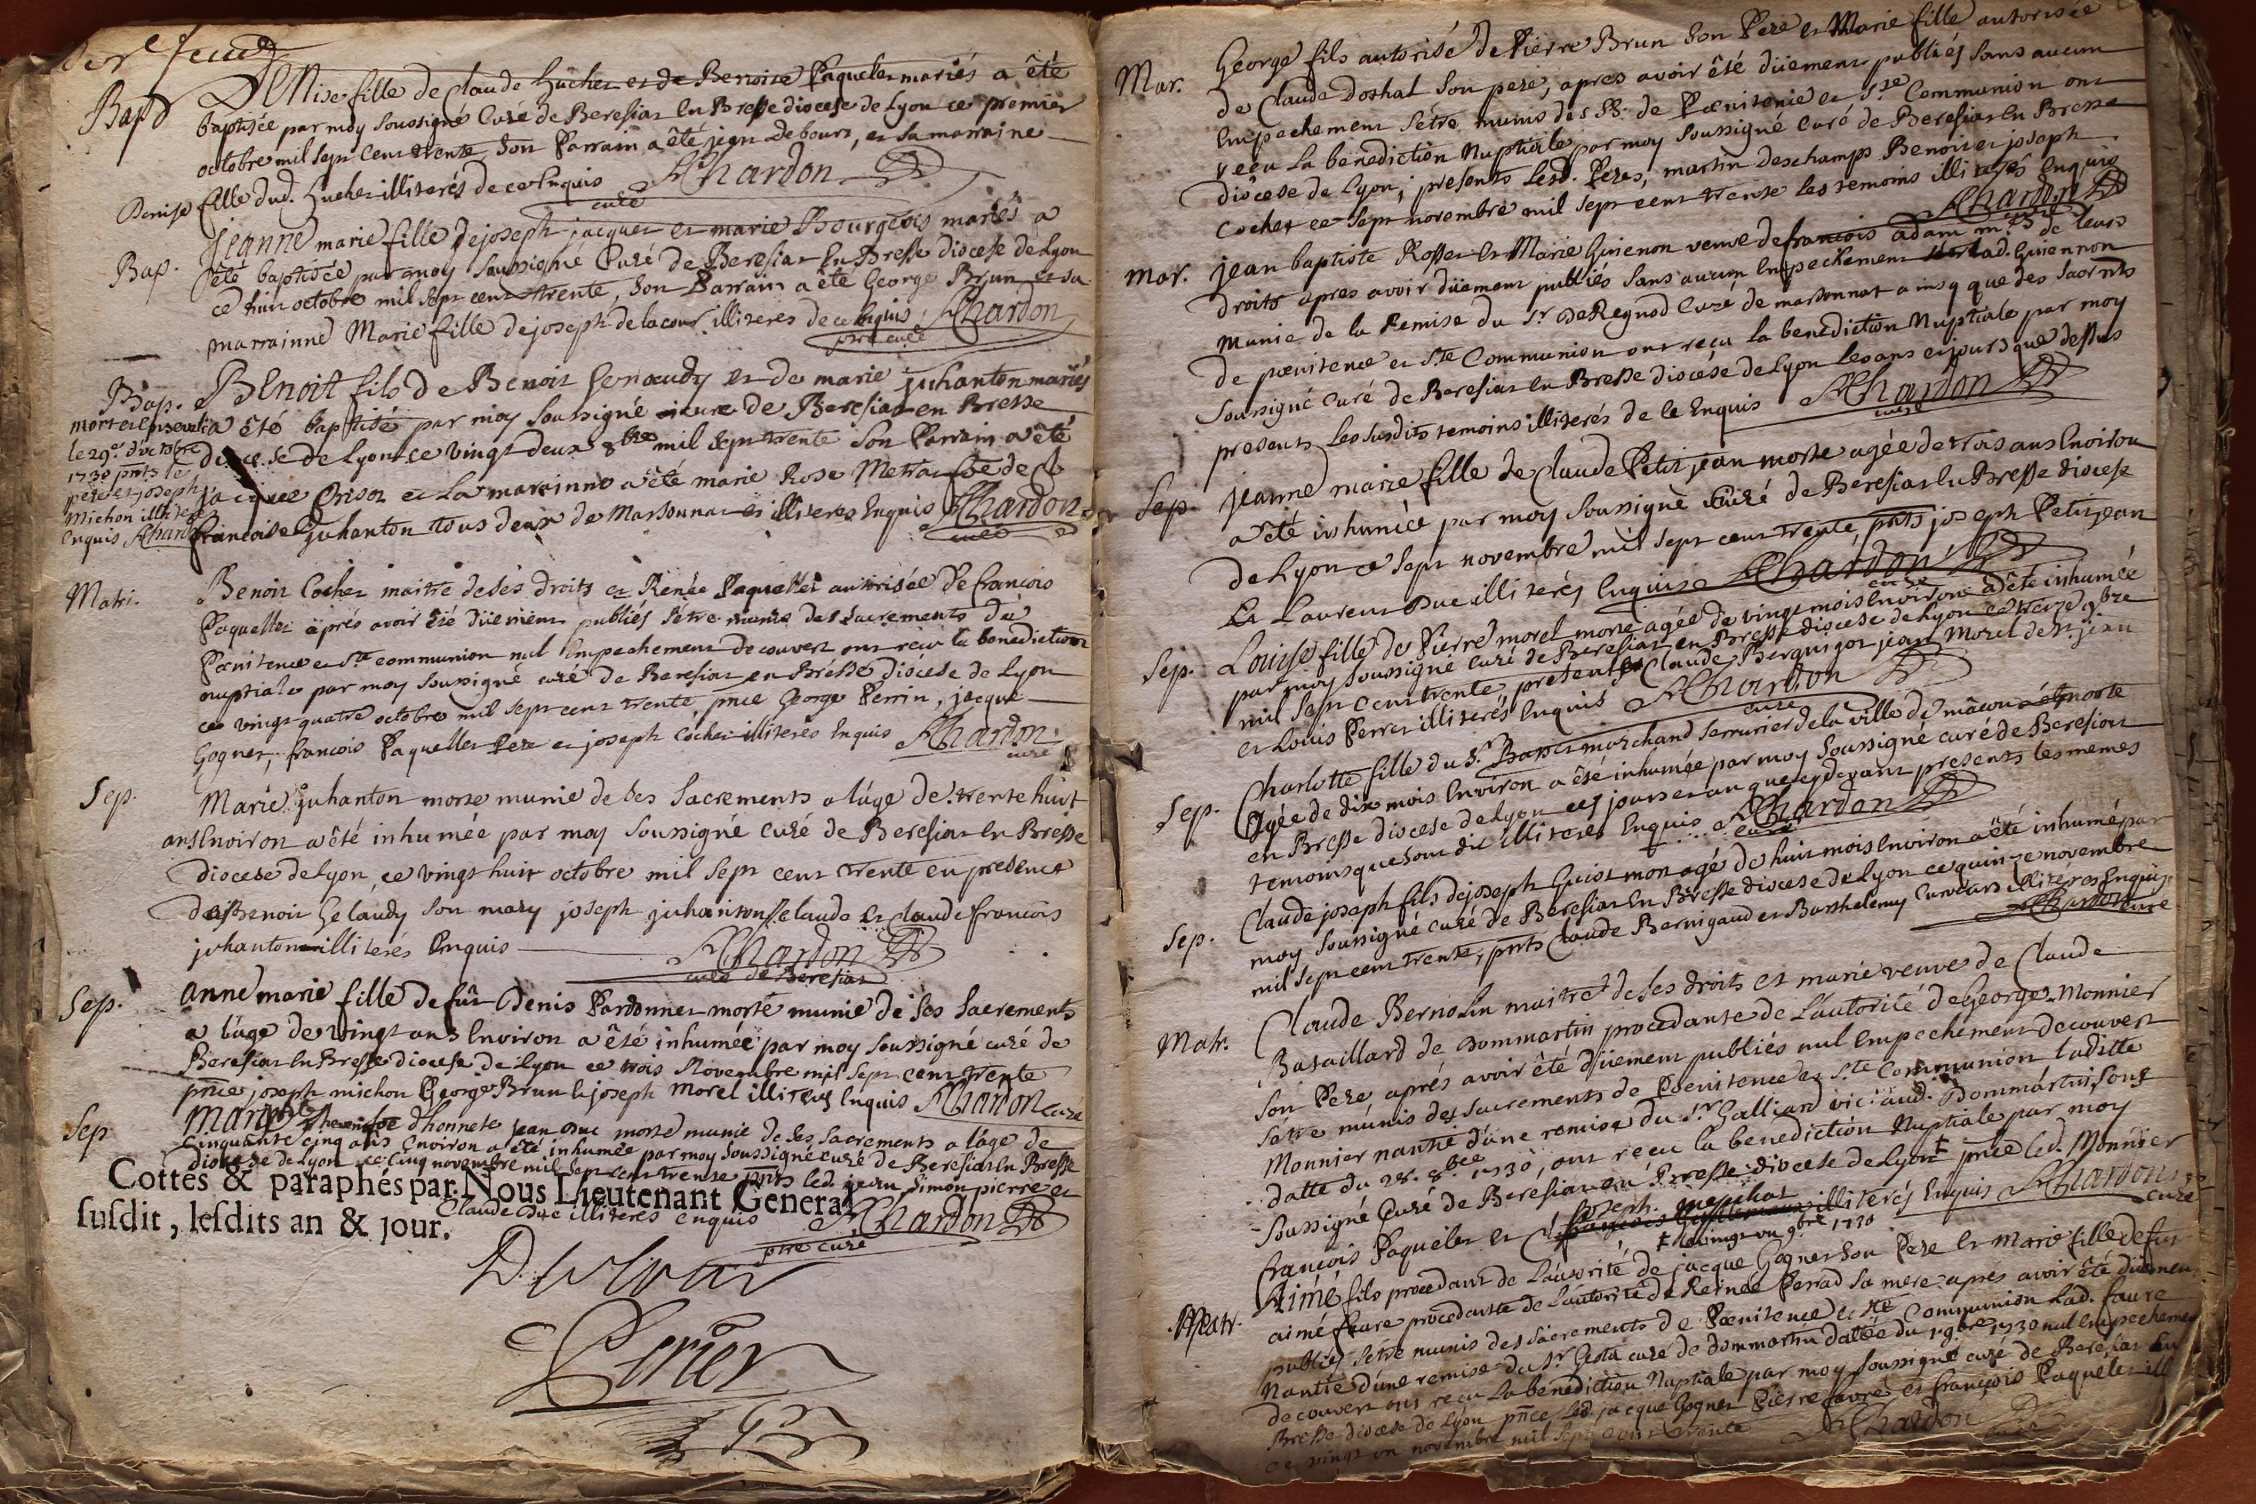 Der feuil
Bap
Denise fille de Claude Luchet et de Benoite Paquelet mariés a êté
baptisée par moy soussigné Curé de Beresiat en Bresse diocese de Lyon ce premier
octobre mil sept cent trente, son Parrain a êté jean debourt, et sa marraine
Denise fille dud. Luchet illiterés de ce Enquis AChardon
curé
Bap.
Jeanne marie fille de joseph jacquet et marie Bourgeois mariés a
êté baptisée par moy soussigné Curé de Beresiat en Bresse diocese de Lyon
ce huit octobre mil sept cent trente, son Parrain a êté George Brun et sa
marrainne Marie fille de joseph de la cour illiteres de ce Enquis AChardon
pre curé
Bap.
Benoit fils de Benoit Genoeudy et de marie juhanton mariés
a êté baptisé par moy soussigné curé de Beresiat en Bresse
diocese de Lyon ce vingt deux 8bre mil sept trente son Parrain a êté
jacque Crison et La marainne a êté marie Rose Metra
francoise juhanton tous deux de Marsonnat et illiteres Enquis AChardon
curé
mort et enseveli
le 29e. d'octobre
1730 pnts le
pere et joseph
Michon illiteres
Enquis AChardon
Matri.
Benoit Cochet maitre de ses droits et Renée Paquellet autorisée de francois
Paquellet aprés avoir êté düement publiés s'etre munis des sacrements de
Poenitence et Ste communion nul Empechement decouvert ont recu la benediction
nuptiale par moy soussigné curé de Beresiat en Bresse diocese de Lyon
ce vingt quatre octobre mil sept cent trente, pnce George Perrin, jacque
Gognet, francois Paquellet Pere et joseph Cochet illiterés Enquis AChardon
curé
Sep.
Marie juhanton morte munie de ses Sacrements a l'âge de trente huit
ans Environ a êté inhumée par moy soussigné curé de Beresiat En Bresse
diocese de Lyon, ce vingt huit octobre mil sept cent trente en presence
de Benoit Gelaudy son mary joseph juhanton Claude et Claude francois
juhanton illiterés Enquis AChardon
curé de Beresiat
Sep.
Anne marie fille de fût Denis Pardonnet morte munie de ses Sacrements
a l'âge de vingt ans Environ a êté inhumée par moy soussigné curé de
Beresiat En Bresse diocese de Lyon ce trois Novembre mil sept cent trente
pnce joseph michon George Brun et joseph morel illiteres Enquis AChardon curé
Sep
Marie Thevenot d'honnete jean Duc morte munie de ses sacrements a l'âge de
Cinquante cinq ans Environ a êté inhumée par moy soussigné curé de Beresiat En Bresse
diocese de Lyon ce Cinq novembre mil sept cent trente pnts led. jean, Simon pierre et
Cottés & paraphés par Nous Lieutenant General
Claude Duc illiteres enquis AChardon
susdit, lesdits an & jour.
ptre curé
Perier
Mar.
George fils autorisé de Pierre Brun son Pere et Marie fille autorisée
de Claude doshal son pere, apres avoir êté düement publiés sans aucun
Empechement s'être munis des SS. de Poenitenie et Ste Communion ont
reçu La bénédiction Nuptiale par moy soussigné curé de Beresiat En Bresse
diocese de Lyon, presents Lesd. Peres, martin deschamps Benoit et joseph
Cochet ce sept novembre mil sept cent trente les temoins illiterés Enquis
AChardon
Mar.
jean baptiste Rosset et Marie Guienon veuve de francois adam mtres de leurs
droits apres avoir düement publiés sans aucun Empechement lad. Guiennon
munie de la Remise du Sr DeRegnod Curé de marsonnat ainsy que des sacrnts
de poenitence et Ste Communion ont reçu la benediction Nuptiale par moy
soussigné curé de Beresiat en Bresse diocése de Lyon les ans et jours que dessus
presents Les susdits temoins illiterés de ce Enquis AChardon
curé
Sep.
jeanne marie fille de Claude Petitjean morte agée de trois ans Environ
a êté inhumée par moy soussigné Curé de Beresiat En Bresse diocese
de Lyon ce sept novembre mil sept cent trente, pnts joseph Petitjean
Et Laurent Duc illiterés Enquis AChardon
curé
Sep.
Louise fille de Pierre morel morte agée de vingt mois Environ a êté inhumée
par moy soussigné curé de Beresiat en Bresse diocese de Lyon ce treize 9bre
mil sept cent trente, presents Claude Berquigot jean Morel de St. jean
et Louis Perret illiterés Enquis AChardon
curé
Sep.
Charlotte fille du Sr. marchand serrurier de la ville de mâcon morte
agée de dix mois Environ a êté inhumée par moy soussigné curé de Beresiat
en Bresse diocese de Lyon ces jours et an que cydevant presents les memes
temoins que sont dit illiteres Enquis AChardon
curé
Sep.
Claude joseph fils de joseph Guiot mort agé de huit mois Environ a êté inhumé par
moy soussigné curé de Beresiat En Bresse diocese de Lyon ce quinze novembre
mil sept cent trente, pnts Claude Bernigaud et Barthelemy illiteres Enquis
AChardon curé
Matr.
Claude Bernolin maitre de ses droits et marie veuve de Claude
Bataillard de Dommartin procedante de L'autorité de George Monnier
son Pere aprés avoir êté düement publiés nul Empechement decouvert
s'etre munis des sacrements de Poenitence et Ste Communion laditte
Monnier nantie d'une remise du Sr Galliard vic: aud. Dommartin, sous
datte du 28. 8bre 1730, ont reçu la benediction Nuptiale par moy
Soussigné Curé de Beresiat en Bresse diocese de Lyon † pnce led. Monnier
francois Paquelet et joseph meschat illiterés Enquis AChardon
curé
† le vingt un 9bre 1730
Matr.
Aimé fils procedant de L'autorité de jacque Gognet son Pere et Marie fille de fut
aimé faure procedante de L'autorité de Reinée Perrad sa mere apres avoir êté düement
publiés s'etre munis des sacrements de Poenitence et Ste Communion Lad. faure
nantie d'une remise du Sr Gesta curé de dommartin dattée du 19bre 1730 nul Empechement
decouvert ont reçu La benediction Nuptiale par moy soussigné curé de Beresiat En
Bresse diocese de Lyon pnce Led. jacque Gognet Pierre favre et françois Paquelet ill
ce vingt un novembre mil sept cent trente AChardon